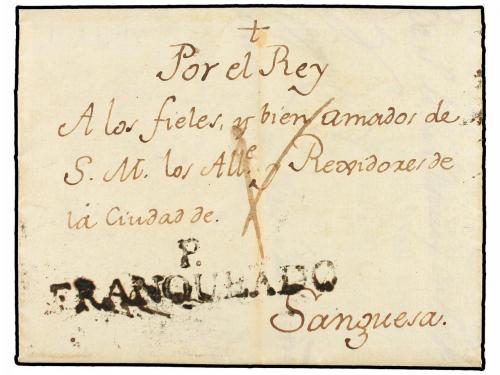 +
Por el Rey
A los fieles, y bien amados de
S. M. los Alle. y Rexidores de
la Ciudad de.
P.
FRANQUEADO
Sanguesa.